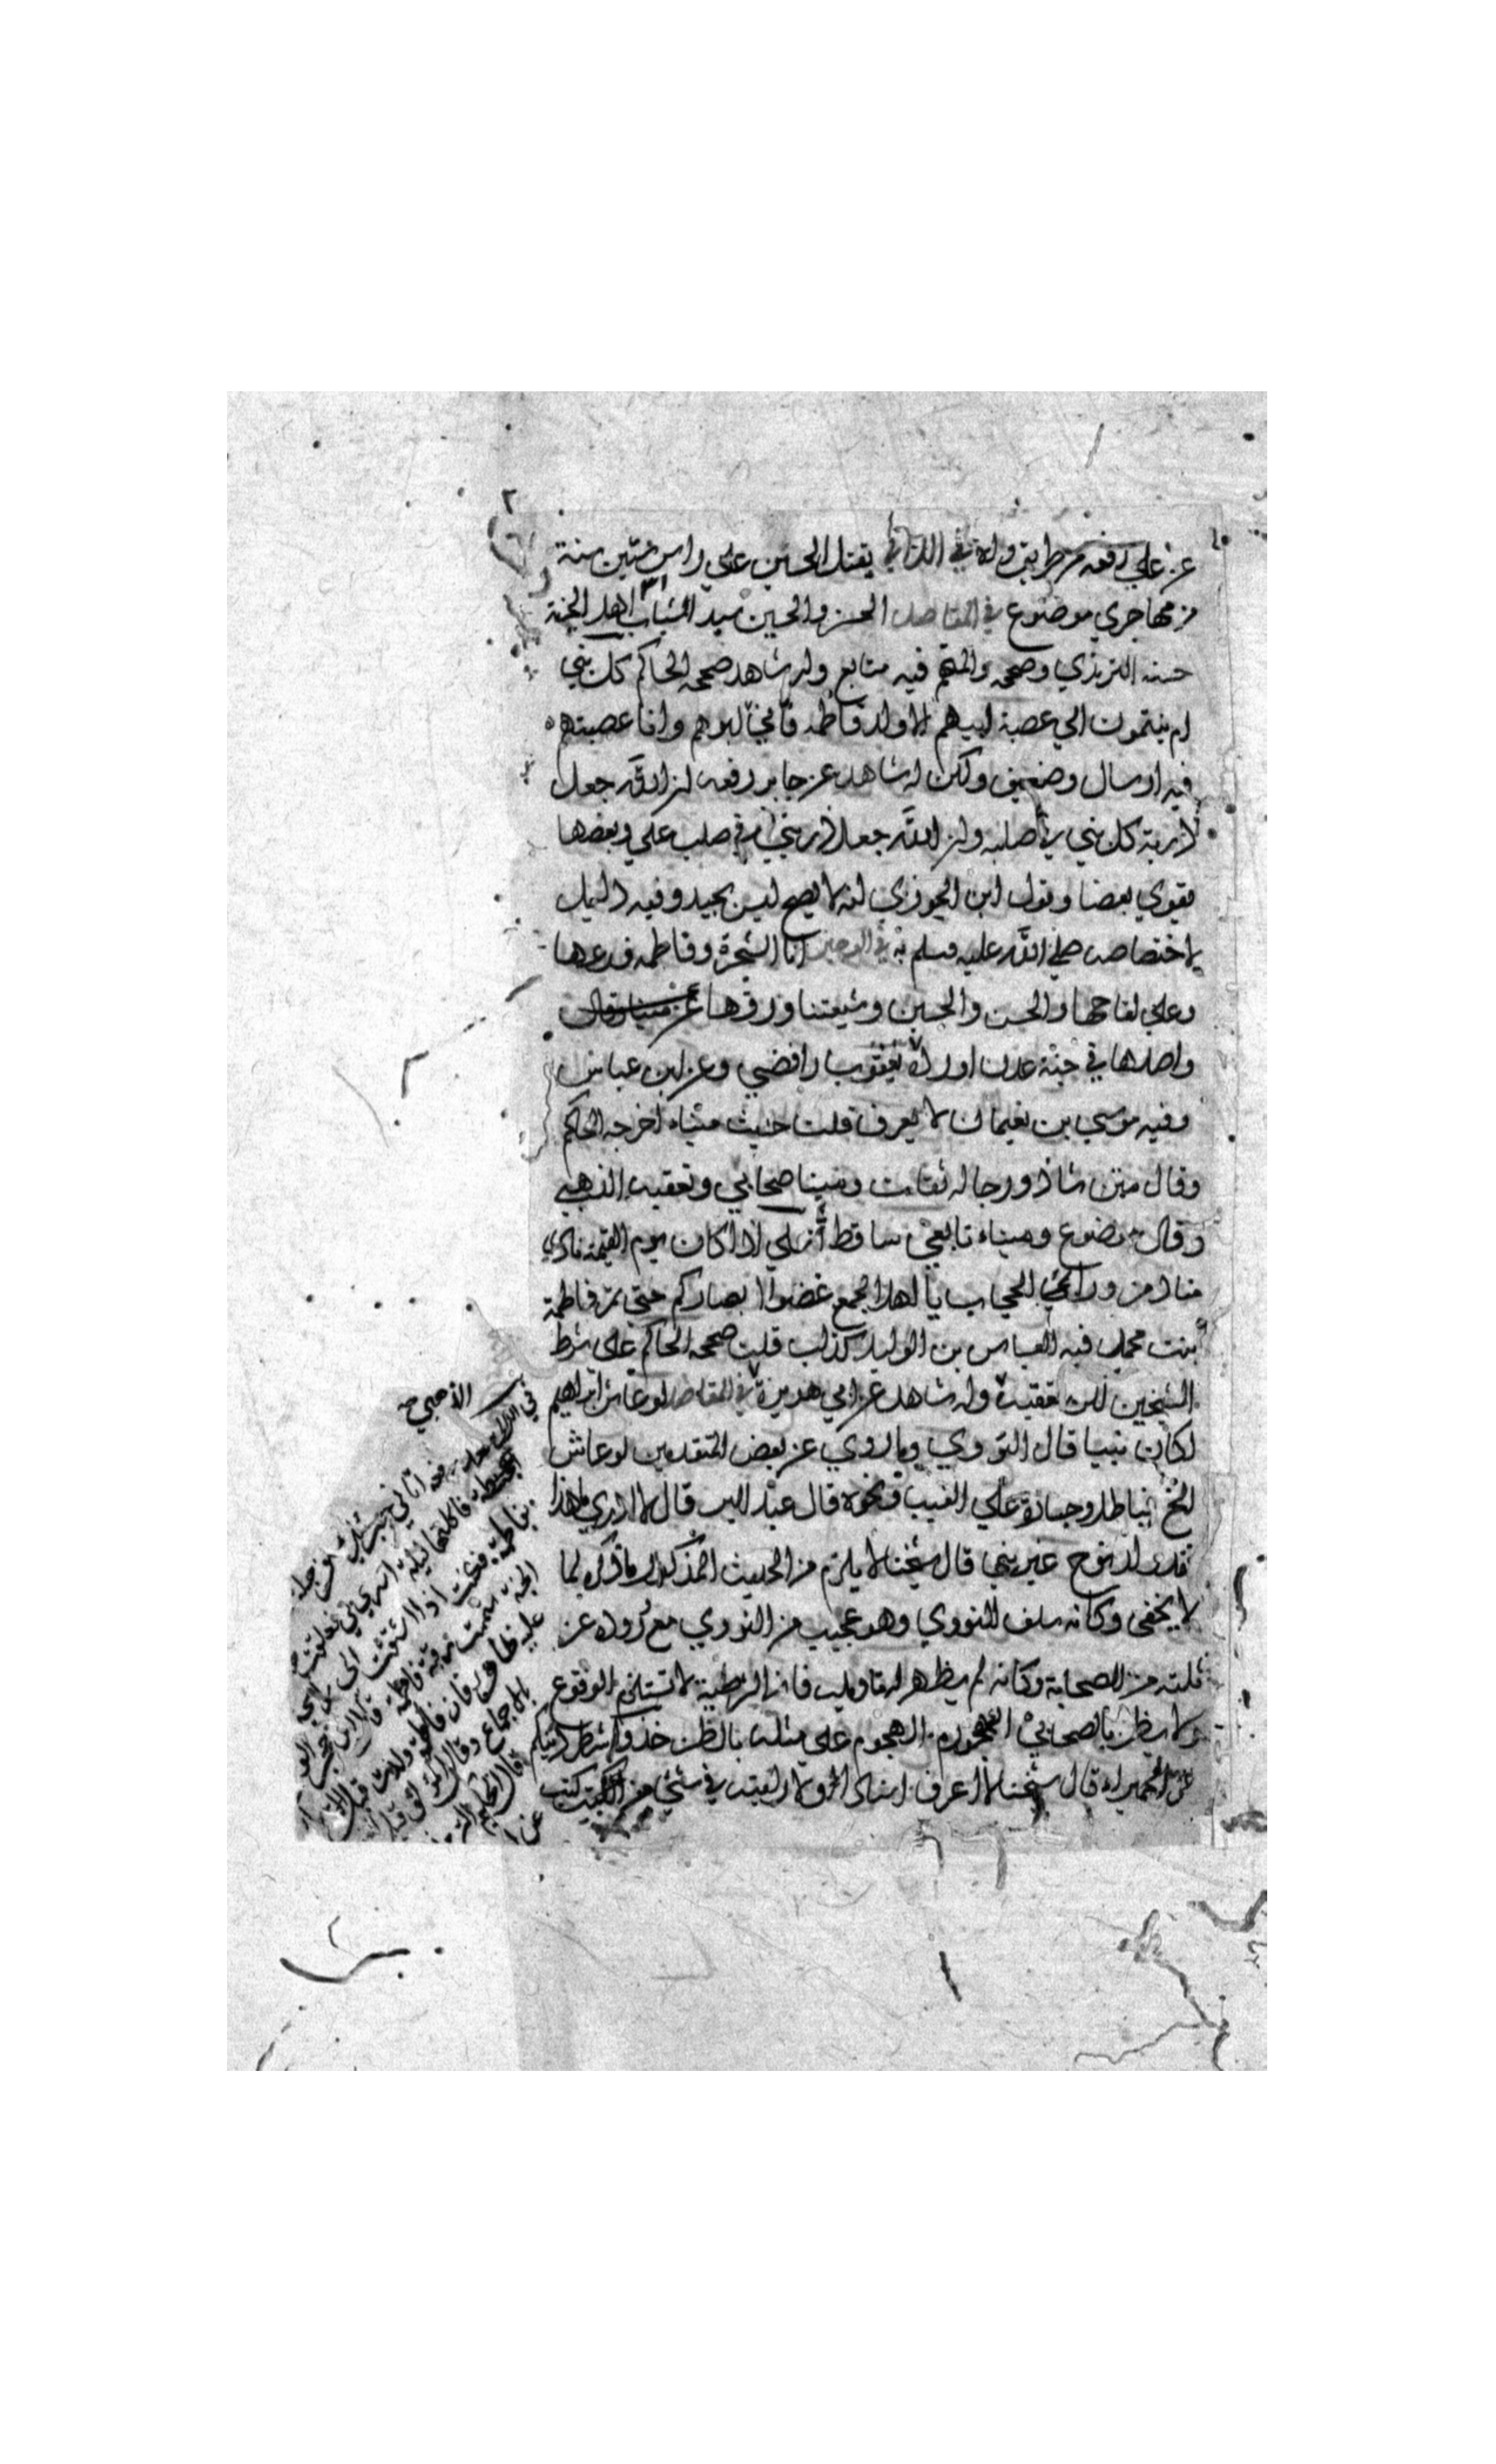 عن علي رفعه من طريق ولاه في اللآلي يقتل الحسين علي راس ستين سنة
من مهاجري موضوع في المقاصد الحسن والحسين سيدا شباب اهل الجنة
حسنه الترمذي وصححه فيه متابع وله شاهد صححه الحاكم كل بني
ام ينتمون الي عصبة ابيهم الا ولد فاطمة فاني ابوهم وانا عصبتهم
فيه ارسال وضعيف ولكن له شاهد عن جابر رفعه ان الله جعل
ذرية كل بني في صلبه وان الله جعل ذريتي في صلب علي وبعضها
يقوي بعضا وقول ابن الجوزي انه لا يصح ليس بجيد وفيه دليل
لاختصاصه صلي الله عليه وسلم به في الوجيز انا الشجرة وفاطمة فرعها
وعلي لقاحها والحسن والحسين وشيعتنا ورقها
واصلها في جنة عدن يعقوب رافضي وعن ابن عباس
وفيه موسي بن نعيمان لا يعرف قلت حديث ميناء اخرجه الحاكم
وقال متن شاذ ورجاله ثقات ومينا صحابي وتعقبه الذهبي
وقال موضوع وميناء تابعي ساقط علي اذا كان يوم القيمة نادي
مناد من وراء الحجاب يا اهل الجمع غضوا ابصاركم حتي تمر فاطمة
بنت محمد فيه العباس بن الوليد كذاب قلت صححه الحاكم علي شرط
الشيخين وله شاهد عن ابي هريرة في المقاصد لو عاش ابراهيم
لكان نبيا قال النووي وما روي عن بعض المتقدمين لو عاش
الخ باطل وجسارة علي الغيب ونحوه قال عبد البر قال لا ادري ما هذا
فقد ولد نوح غير نبي قال شيخنا لا يلزم من الحديث المذكور ما ذكره لما
لا يخفى وكانه سلف للنووي وهو عجيب من النووي مع وروده عن
ثلثة من الصحابة وكانه لم يظهر له تاويله فان الشرطية لا تستلزم الوقوع
ولا يظن بالصحابي الهجوم علي مثله بالظن خذوا شطر دينكم
عن الحميراء قال شيخنا لا اعرف اسنادا له ولا رايته في شئي من كتب
الاصبهي
في اللآلي اتاني جبرئيل
فاكلتها ليلة اسري بي فعلقت
بفاطمة فكنت اذا اشتقت الى
الجنة شممت رقبة فاطمة قال ابن حجر
فان فاطمة ولدت قبل
بالاجماع